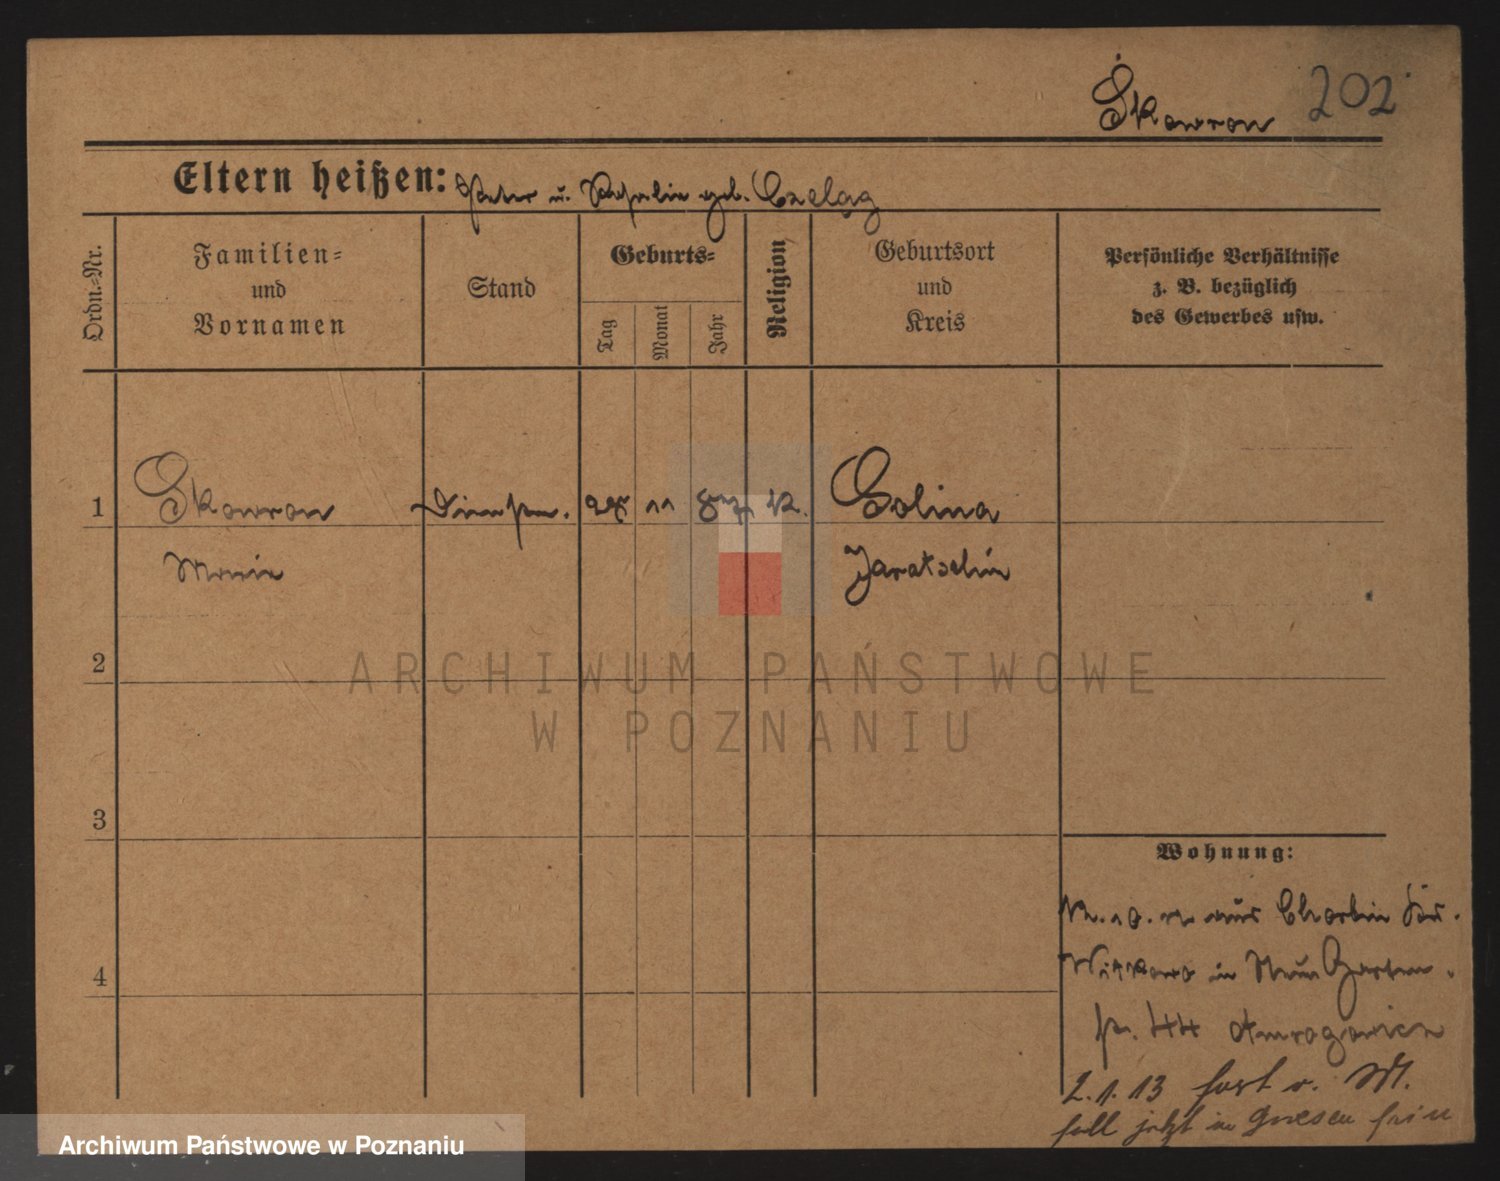 Skowron 202
Eltern heißen: Peter u. Rosalie geb. Czelag
Ordn.-Nr.
Familien-
und
Vornamen
Stand
Geburts-
Tag
Monat
Jahr
Religion
Geburtsort
und
Kreis
Persönliche Verhältnisse
z. B. bezüglich
des Gewerbes usw.
1 Skowron 11 K. Golina
Marie Jaratschin
2
3
4
Wohnung:
aus Chorbin
Witkowo in Garten
2.1.13 fort v.
soll jetzt in Gnesen sein
ARCHIWUM PAŃSTWOWE
W POZNANIU
Archiwum Państwowe w Poznaniu